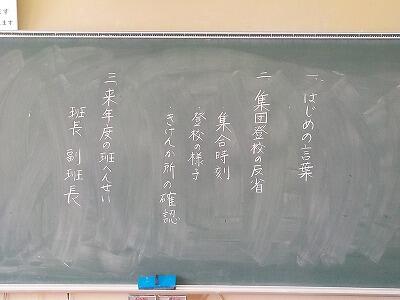 一、はじめの言葉
二、集団登校の反省
・集合時刻
・登校の様子
・きけんか所の確認
三、来年度の班へんせい
班長 副班長